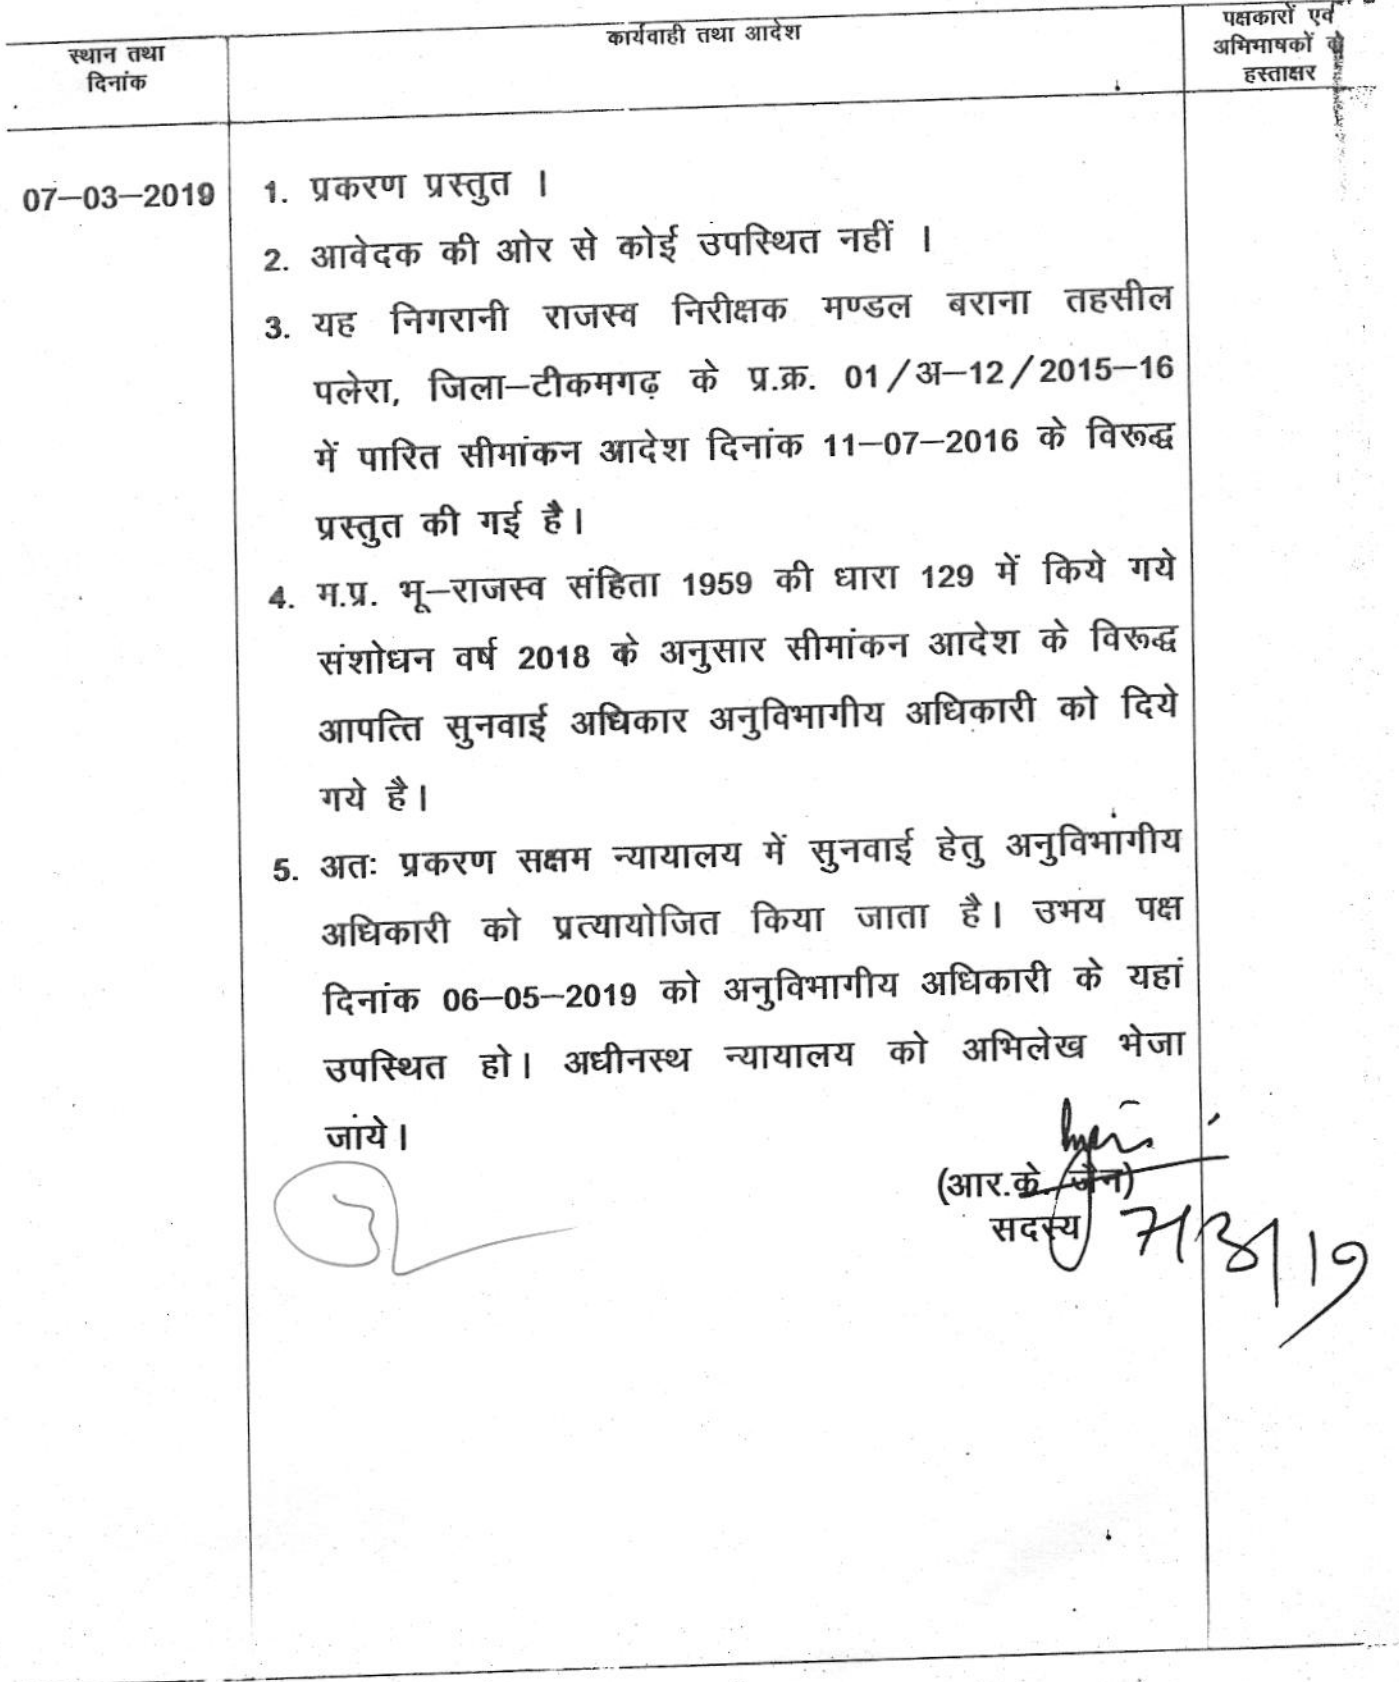 स्थान तथा
दिनांक
कार्यवाही तथा आदेश
पक्षकारों एवं
अभिभाषकों के
हस्ताक्षर
07–03–2019
1. प्रकरण प्रस्तुत ।
2. आवेदक की ओर से कोई उपस्थित नहीं ।
3. यह निगरानी राजस्व निरीक्षक मण्डल बराना तहसील
पलेरा, जिला–टीकमगढ़ के प्र.क्र. 01/अ–12/2015–16
में पारित सीमांकन आदेश दिनांक 11–07–2016 के विरूद्ध
प्रस्तुत की गई है।
4. म.प्र. भू–राजस्व संहिता 1959 की धारा 129 में किये गये
संशोधन वर्ष 2018 के अनुसार सीमांकन आदेश के विरूद्ध
आपत्ति सुनवाई अधिकार अनुविभागीय अधिकारी को दिये
गये है।
5. अतः प्रकरण सक्षम न्यायालय में सुनवाई हेतु अनुविभांगीय
अधिकारी को प्रत्यायोजित किया जाता है। उभय पक्ष
दिनांक 06–05–2019 को अनुविभागीय अधिकारी के यहां
उपस्थित हो। अधीनस्थ न्यायालय को अभिलेख भेजा
जांये।
(आर.के. जैन)
सदस्य